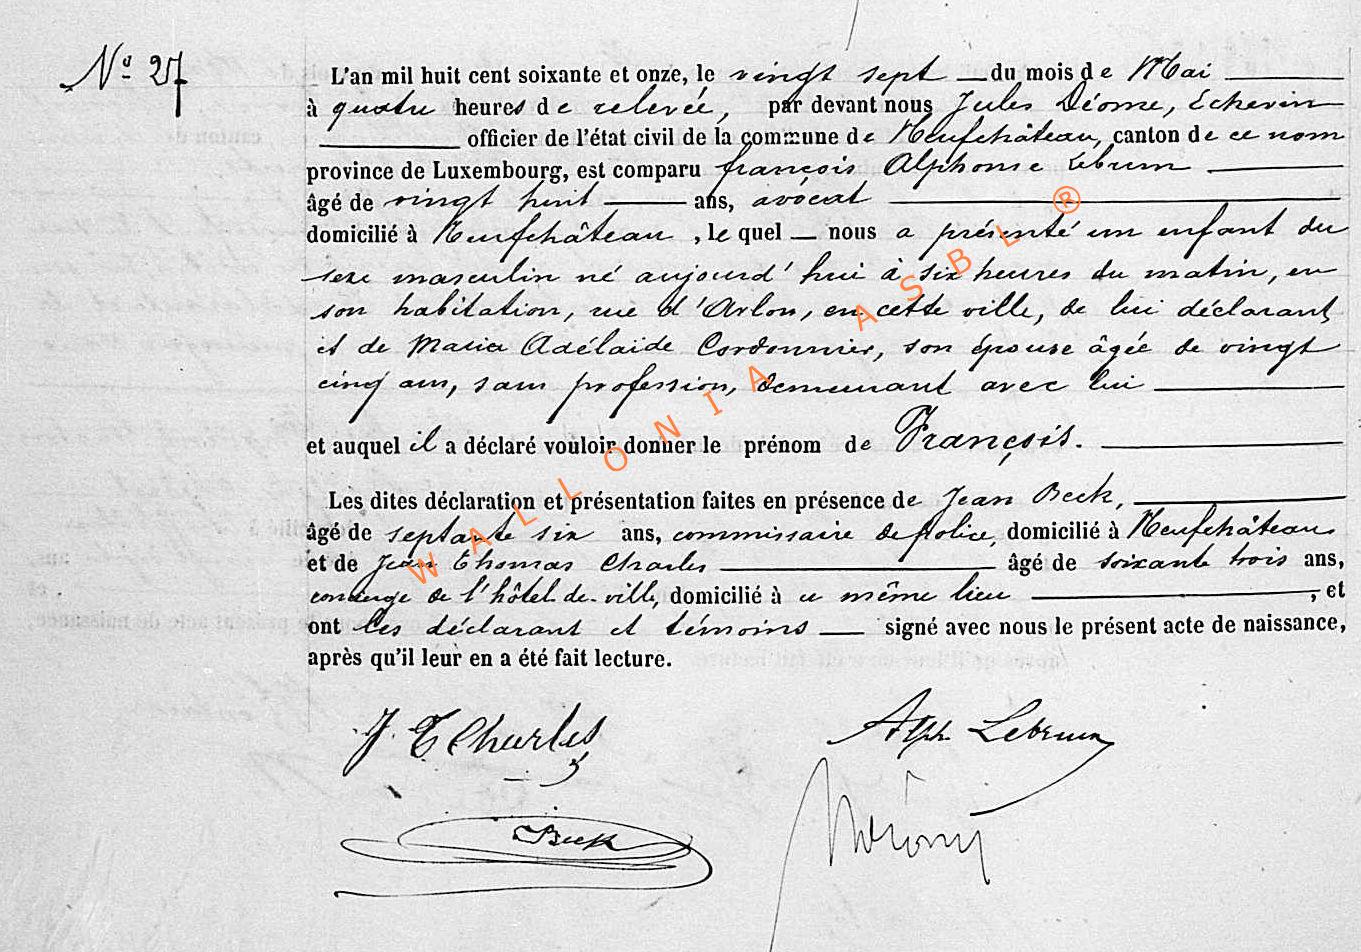 Nº 27
L'an mil huit cent soixante et onze, le vingt sept du mois de Mai
à quatre heures de relevée, par devant nous Jules Déome, Echevin
officier de l'état civil de la commune de Neufchâteau, canton de ce nom
province de Luxembourg, est comparu françois Alphonse Lebrun
âgé de vingt huit ans, avocat
domicilié à Neufchâteau, le quel nous a présenté un enfant du
sexe masculin né aujourd'hui à six heures du matin, en
son habitation, rue d'Arlon, en cette ville, de lui déclarant,
et de Maria Adélaïde Cordonnier, son épouse âgée de vingt
cinq ans, sans profession, demeurant avec lui
et auquel il a déclaré vouloir donner le prénom de François.
Les dites déclaration et présentation faites en présence de Jean Beck,
âgé de septante six ans, commissaire de police, domicilié à Neufchâteau
et de Jean Thomas Charles âgé de soixante trois ans,
concierge de l'hôtel de-ville, domicilié à ce même lieu, et
ont les déclarant et témoins signé avec nous le présent acte de naissance,
après qu'il leur en a été fait lecture.
J. T Charles
Alph. Lebrun
Beck
WALLONIA ASBL ®